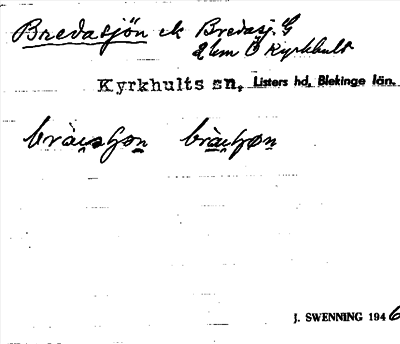 Bredasjön ek Bredasj. G
2 km Ö Kyrkhult
Kyrkhults sn. Listers hd, Blekinge län.
J. SWENNING 1946